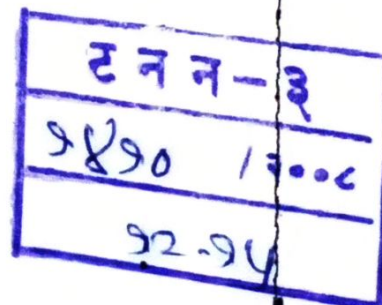 ट न न - ३
१४१० / २००८
१२-१५